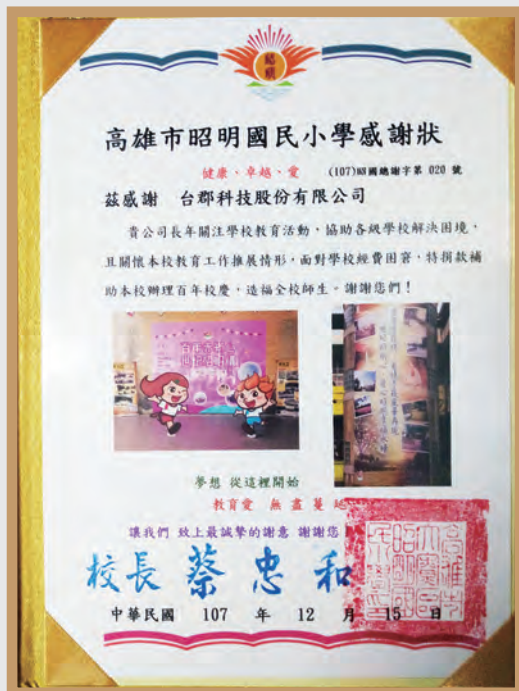 昭明
高雄市昭明國民小學感謝狀
健康、卓越、愛 (107)昭國總謝字第 020 號
茲感謝 台郡科技股份有限公司
貴公司長年關注學校教育活動，協助各級學校解決困境，
且關懷本校教育工作推展情形，面對學校經費困窘，特捐款補
助本校辦理百年校慶，造福全校師生。謝謝您們！
夢想 從這裡開始
教育愛 無盡蔓延
讓我們 致上最誠摯的謝意 謝謝您
校長 蔡忠和
中華民國 107 年 12 月 15 日